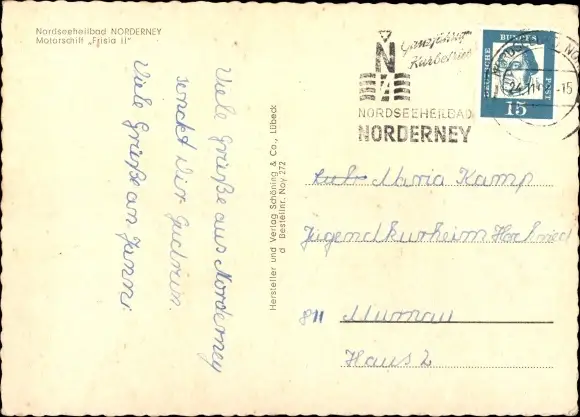 Nordseeheilbad NORDERNEY
Motorschiff „Frisia II"
Viele Grüße aus Norderney
senckt Dir Gudrun.
Viele Grüße an Janni.
Hersteller und Verlag Schöning & Co., Lübeck
d Bestellnr. Noy 272
Ganzjährig
Kurbetrieb
N
NORDSEEHEILBAD
NORDERNEY
DEUTSCHE BUNDESPOST
15
24.11
-15
Maria Kamp
Jugendkurheim Hochried
811 Murnau
Haus 2